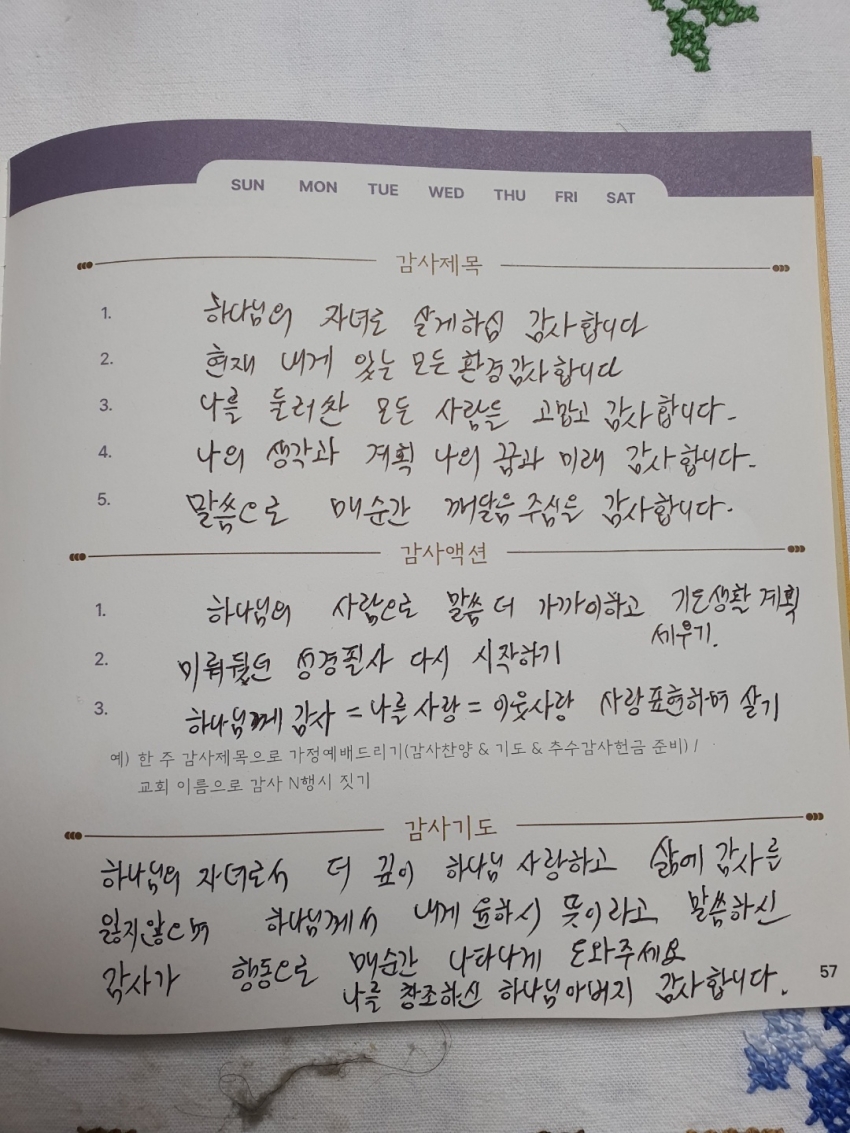 SUN MON TUE WED THU FRI SAT
감사제목
1. 하나님의 자녀로 살게하심 감사합니다
2. 현재 내게 있는 모든 환경감사합니다
3. 나를 둘러싼 모든 사람들 고맙고 감사합니다.
4. 나의 생각과 계획 나의 꿈과 미래 감사합니다.
5. 말씀으로 매순간 깨달음 주심을 감사합니다.
감사액션
1. 하나님의 사람으로 말씀 더 가까이하고 기도생활 계획
세우기.
2. 미뤄뒀던 성경필사 다시 시작하기
3. 하나님께 감사 = 나를 사랑 = 이웃사랑 사랑표현하며 살기
예) 한 주 감사제목으로 가정예배드리기(감사찬양 & 기도 & 추수감사헌금 준비) /
교회 이름으로 감사 N행시 짓기
감사기도
하나님의 자녀로서 더 깊이 하나님 사랑하고 삶에 감사를
잃지않으며 하나님께서 내게 원하시 뜻이라고 말씀하신
감사가 행동으로 매순간 나타나게 도와주세요
나를 창조하신 하나님아버지 감사합니다.
57